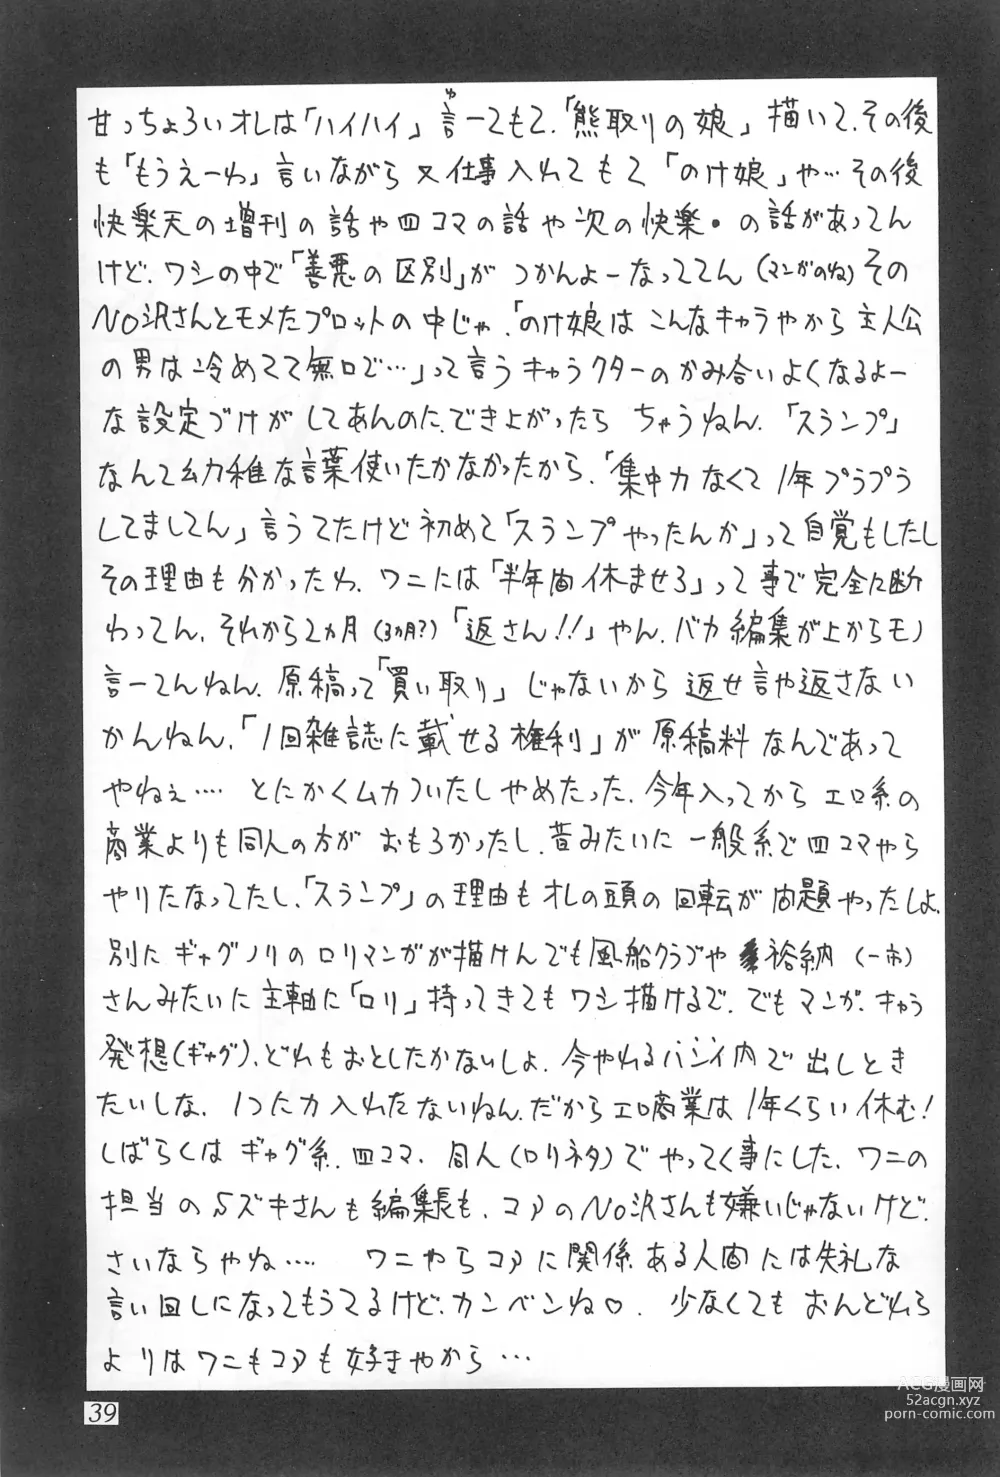 ゆ
甘っちょろいオレは「ハイハイ」言ーてもて.「熊取りの娘」描いて.その後
も「もうえーわ」言いながら又仕事入れてもて「のけ娘」や…その後
快楽天の増刊の話や四コマの話や次の快楽・の話があってん
けど.ワシの中で「善悪の区別」がつかんよーなっててん(マンガのね)その
NO沢さんとモメたプロットの中じゃ.「のけ娘はこんなキャラやから主人公
の男は冷めてて無口で…」って言うキャラクターのかみ合いよくなるよー
な設定づけがしてあんのに.でき上がったらちゃうねん.「スランプ」
なんて幼稚な言葉使いたかなかったから.「集中力なくて1年プラプラ
してましてん」言うてたけど初めて「スランプやったんか」って自覚もしたし
その理由も分かったわ.ワニには「半年間休ませろ」って事で完全に断
わってん.それから2ヵ月(3ヵ月?)「返さん!!」やん.バカ編集が上からモノ
言ーてんねん.原稿って「買い取り」じゃないから返せ言や返さない
かんねん.「1回雑誌に載せる権利」が原稿料なんであって
やねぇ…. とにかくムカついたしやめたった.今年入ってからエロ系の
商業よりも同人の方がおもろかったし.昔みたいに一般系で四コマやら
やりたなってたし.「スランプ」の理由もオレの頭の回転が問題やったしよ.
別にギャグノリのロリマンガが描けんでも風船クラブや裕納(一市)
さんみたいに主軸に「ロリ」持ってきてもワシ描けるで.でもマンガ.キャラ
発想(ギャグ).どれもおとしたかないしよ.今やれるハンイ内で出しとき
たいしな.1つに力入れたないねん.だからエロ商業は1年くらい休む!
しばらくはギャグ系.四コマ.同人(ロリネタ)でやってく事にした.ワニの
担当のSズキさんも編集長も.コアのNO沢さんも嫌いじゃないけど.
さいならやね…. ワニやらコアに関係ある人間には失礼な
言い回しになってもうてるけど.カンベンね♡. 少なくてもおんどれら
よりはワニもコアも好きやから…
39
ACG漫画网
52acgn.xyz
porn-comic.com